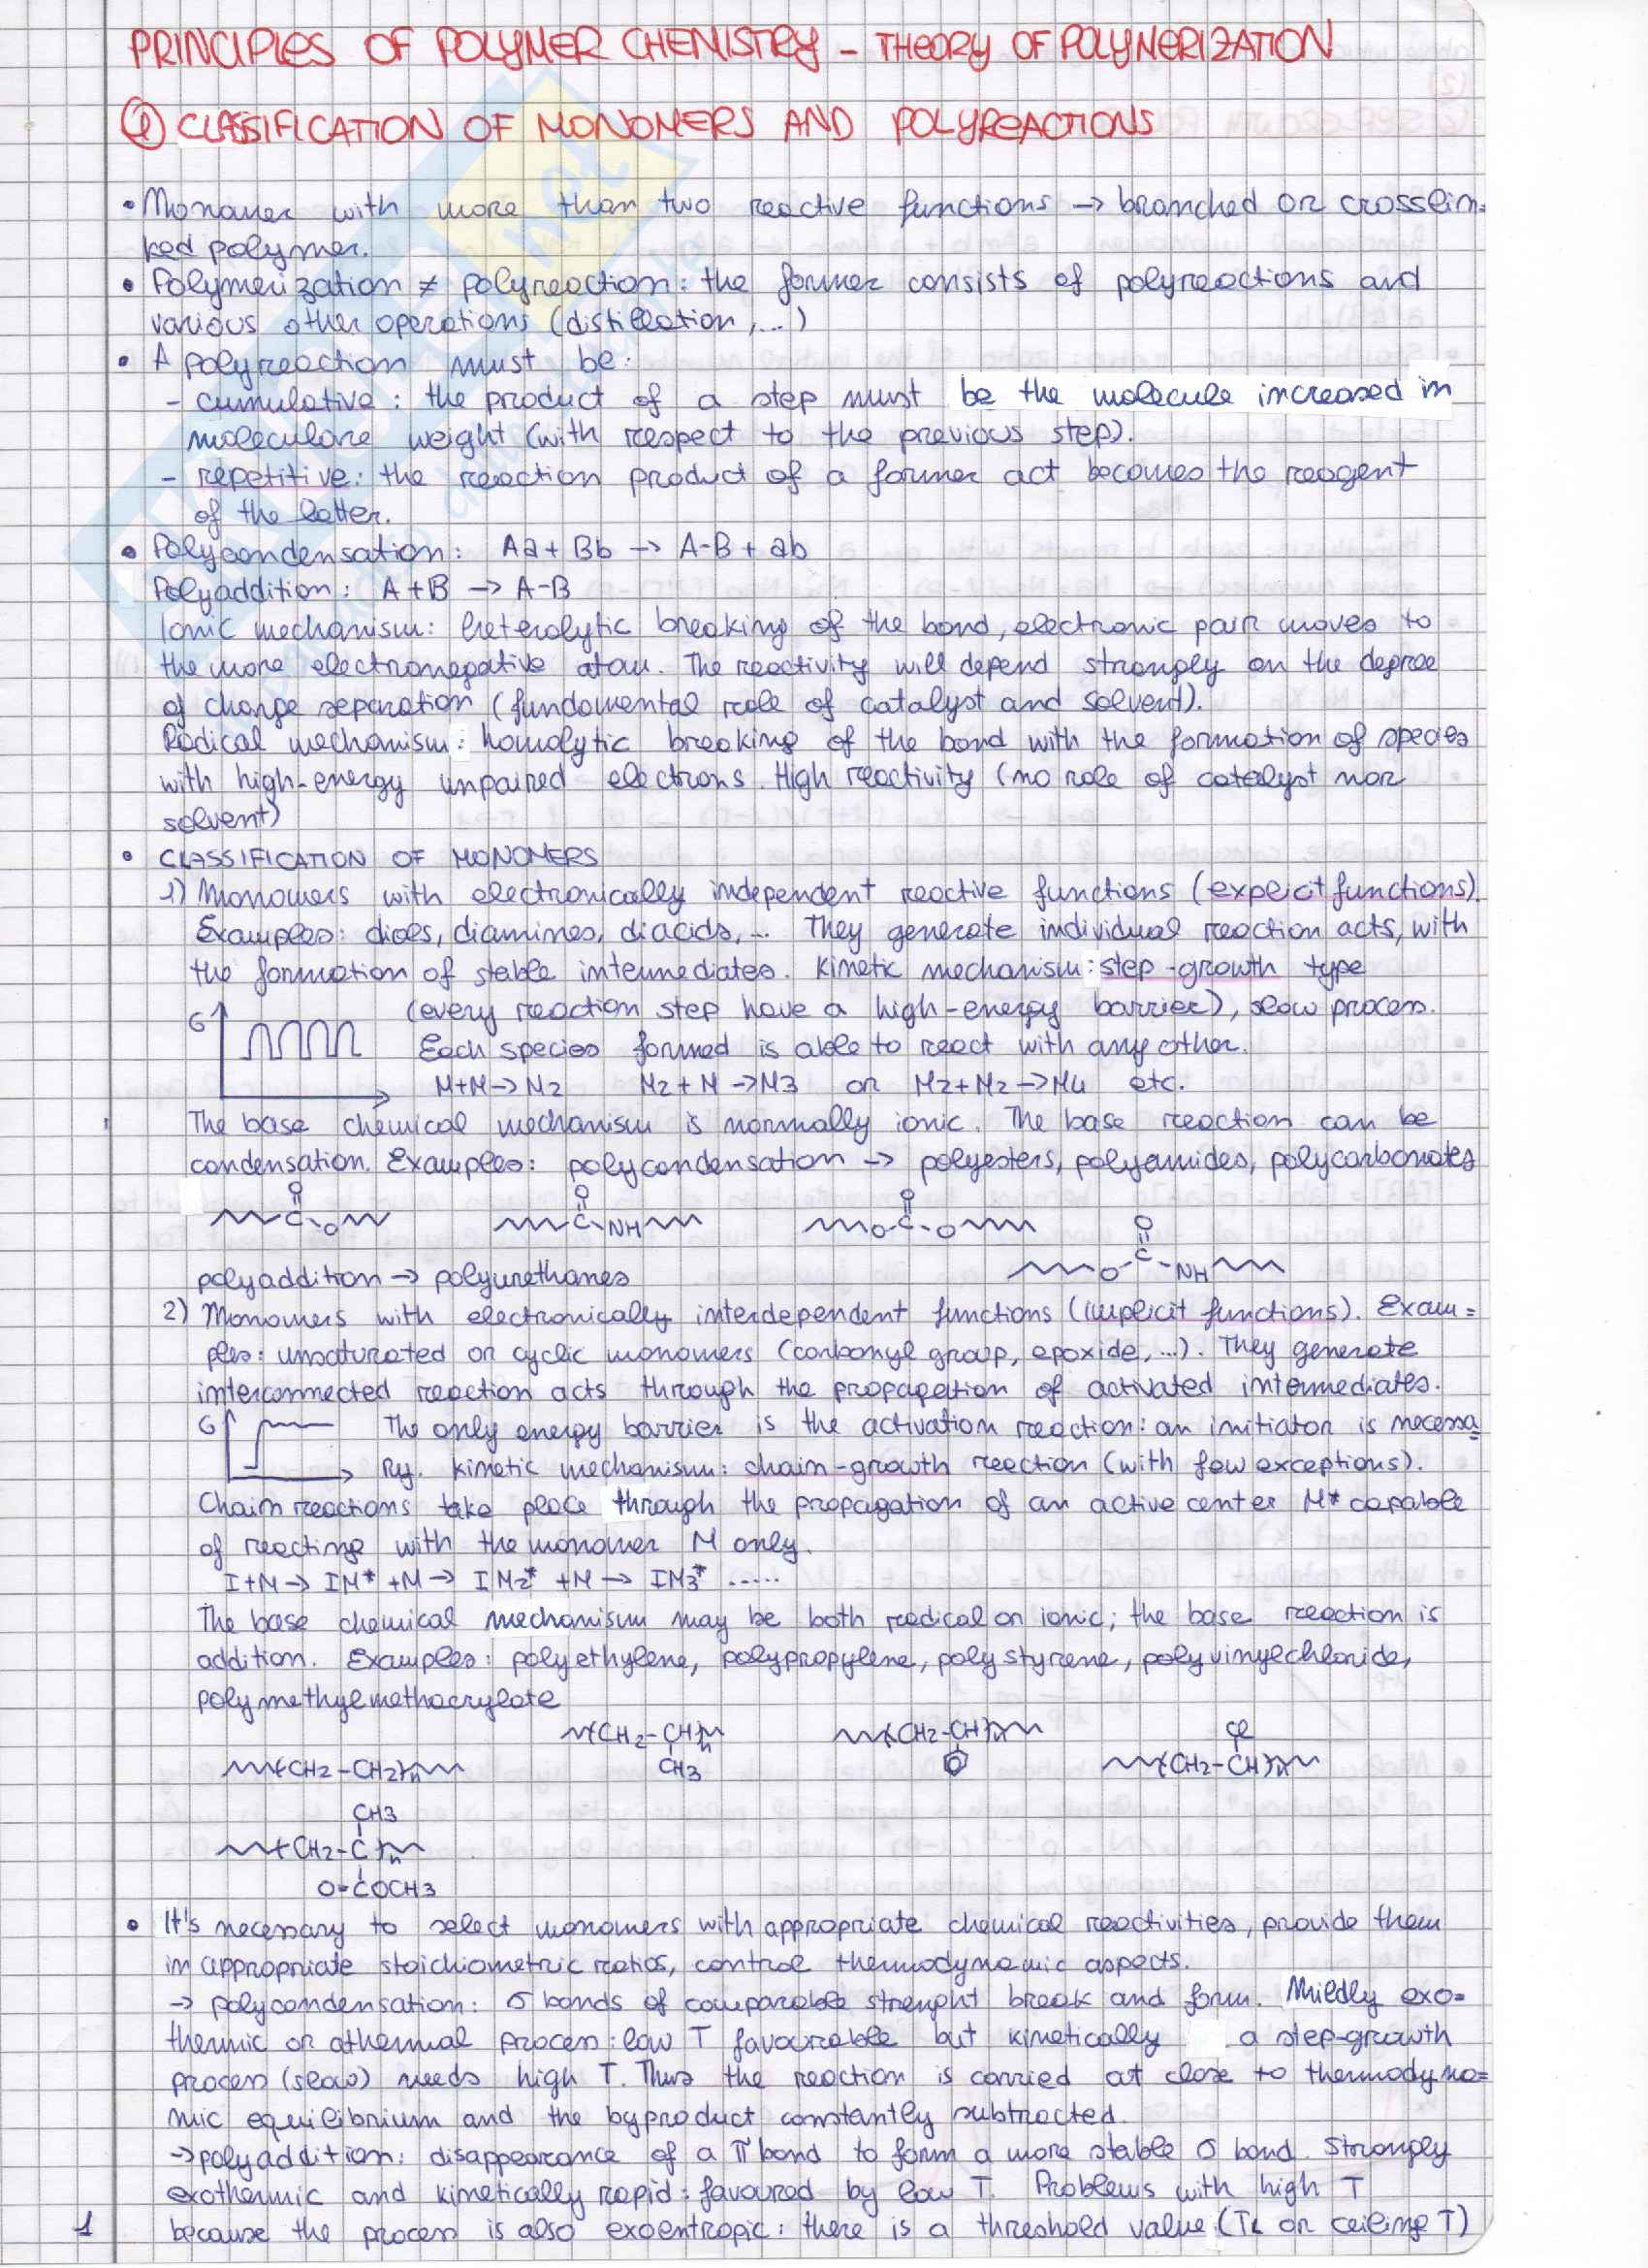 PRINCIPLES OF POLYMER CHEMISTRY - THEORY OF POLYMERIZATION
① CLASSIFICATION OF MONOMERS AND POLYREACTIONS
• Monomer with more than two reactive functions → branched or crosslin=
ked polymer.
• Polymerization ≠ polyreaction: the former consists of polyreactions and
various other operations (distillation, ...)
• A polyreaction must be:
- cumulative: the product of a step must be the molecule increased in
moleculare weight (with respect to the previous step).
- repetitive: the reaction product of a former act becomes the reagent
of the latter.
• Polycondensation: Aa + Bb → A-B + ab
Polyaddition: A + B → A-B
Ionic mechanism: heterolytic breaking of the bond, electronic pair moves to
the more electronegative atom. The reactivity will depend strongly on the degree
of charge separation (fundamental role of catalyst and solvent).
Radical mechanism: homolytic breaking of the bond with the formation of species
with high-energy unpaired electrons. High reactivity (no role of catalyst nor
solvent)
• CLASSIFICATION OF MONOMERS
1) Monomers with electronically independent reactive functions (explicit functions).
Examples: diols, diamines, diacids, ... They generate individual reaction acts, with
the formation of stable intermediates. Kinetic mechanism: step-growth type
G (every reaction step have a high-energy barrier), slow process.
Each species formed is able to react with any other.
M+M → M2 M2 + M → M3 or M2+M2 → M4 etc.
The base chemical mechanism is normally ionic. The base reaction can be
condensation. Examples: polycondensation → polyesters, polyamides, polycarbonates
O O O
C O C NH O C O
O
O C NH
polyaddition → polyurethanes
2) Monomers with electronically interdependent functions (implicit functions). Exam=
ples: unsaturated or cyclic monomers (carbonyl group, epoxide, ...). They generate
interconnected reaction acts through the propagation of activated intermediates.
G The only energy barrier is the activation reaction: an initiator is necessa=
Ry. Kinetic mechanism: chain-growth reaction (with few exceptions).
Chain reactions take place through the propagation of an active center M* capable
of reacting with the monomer M only.
I+M → IM* +M → IM2* +M → IM3* .....
The base chemical mechanism may be both radical or ionic; the base reaction is
addition. Examples: polyethylene, polypropylene, polystyrene, polyvinylchloride,
polymethylmethacrylate
(CH2-CH)n (CH2-CH)n Cl
(CH2-CH2)n CH3 (CH2-CH)n
CH3
(CH2-C)n
O=COCH3
• It's necessary to select monomers with appropriate chemical reactivities, provide them
in appropriate stoichiometric ratios, control thermodynamic aspects.
→ polycondensation: σ bonds of comparable strenght break and form. Mildly exo=
thermic or athermal process: low T favourable but kinetically a step-growth
process (slow) needs high T. Thus the reaction is carried at close to thermodyna=
mic equilibrium and the byproduct constantly subtracted.
→ polyaddition: disappearance of a π bond to form a more stable σ bond. Strongly
exothermic and kinetically rapid: favoured by low T. Problems with high T
1 because the process is also exoentropic: there is a threshold value (TL or ceiling T)